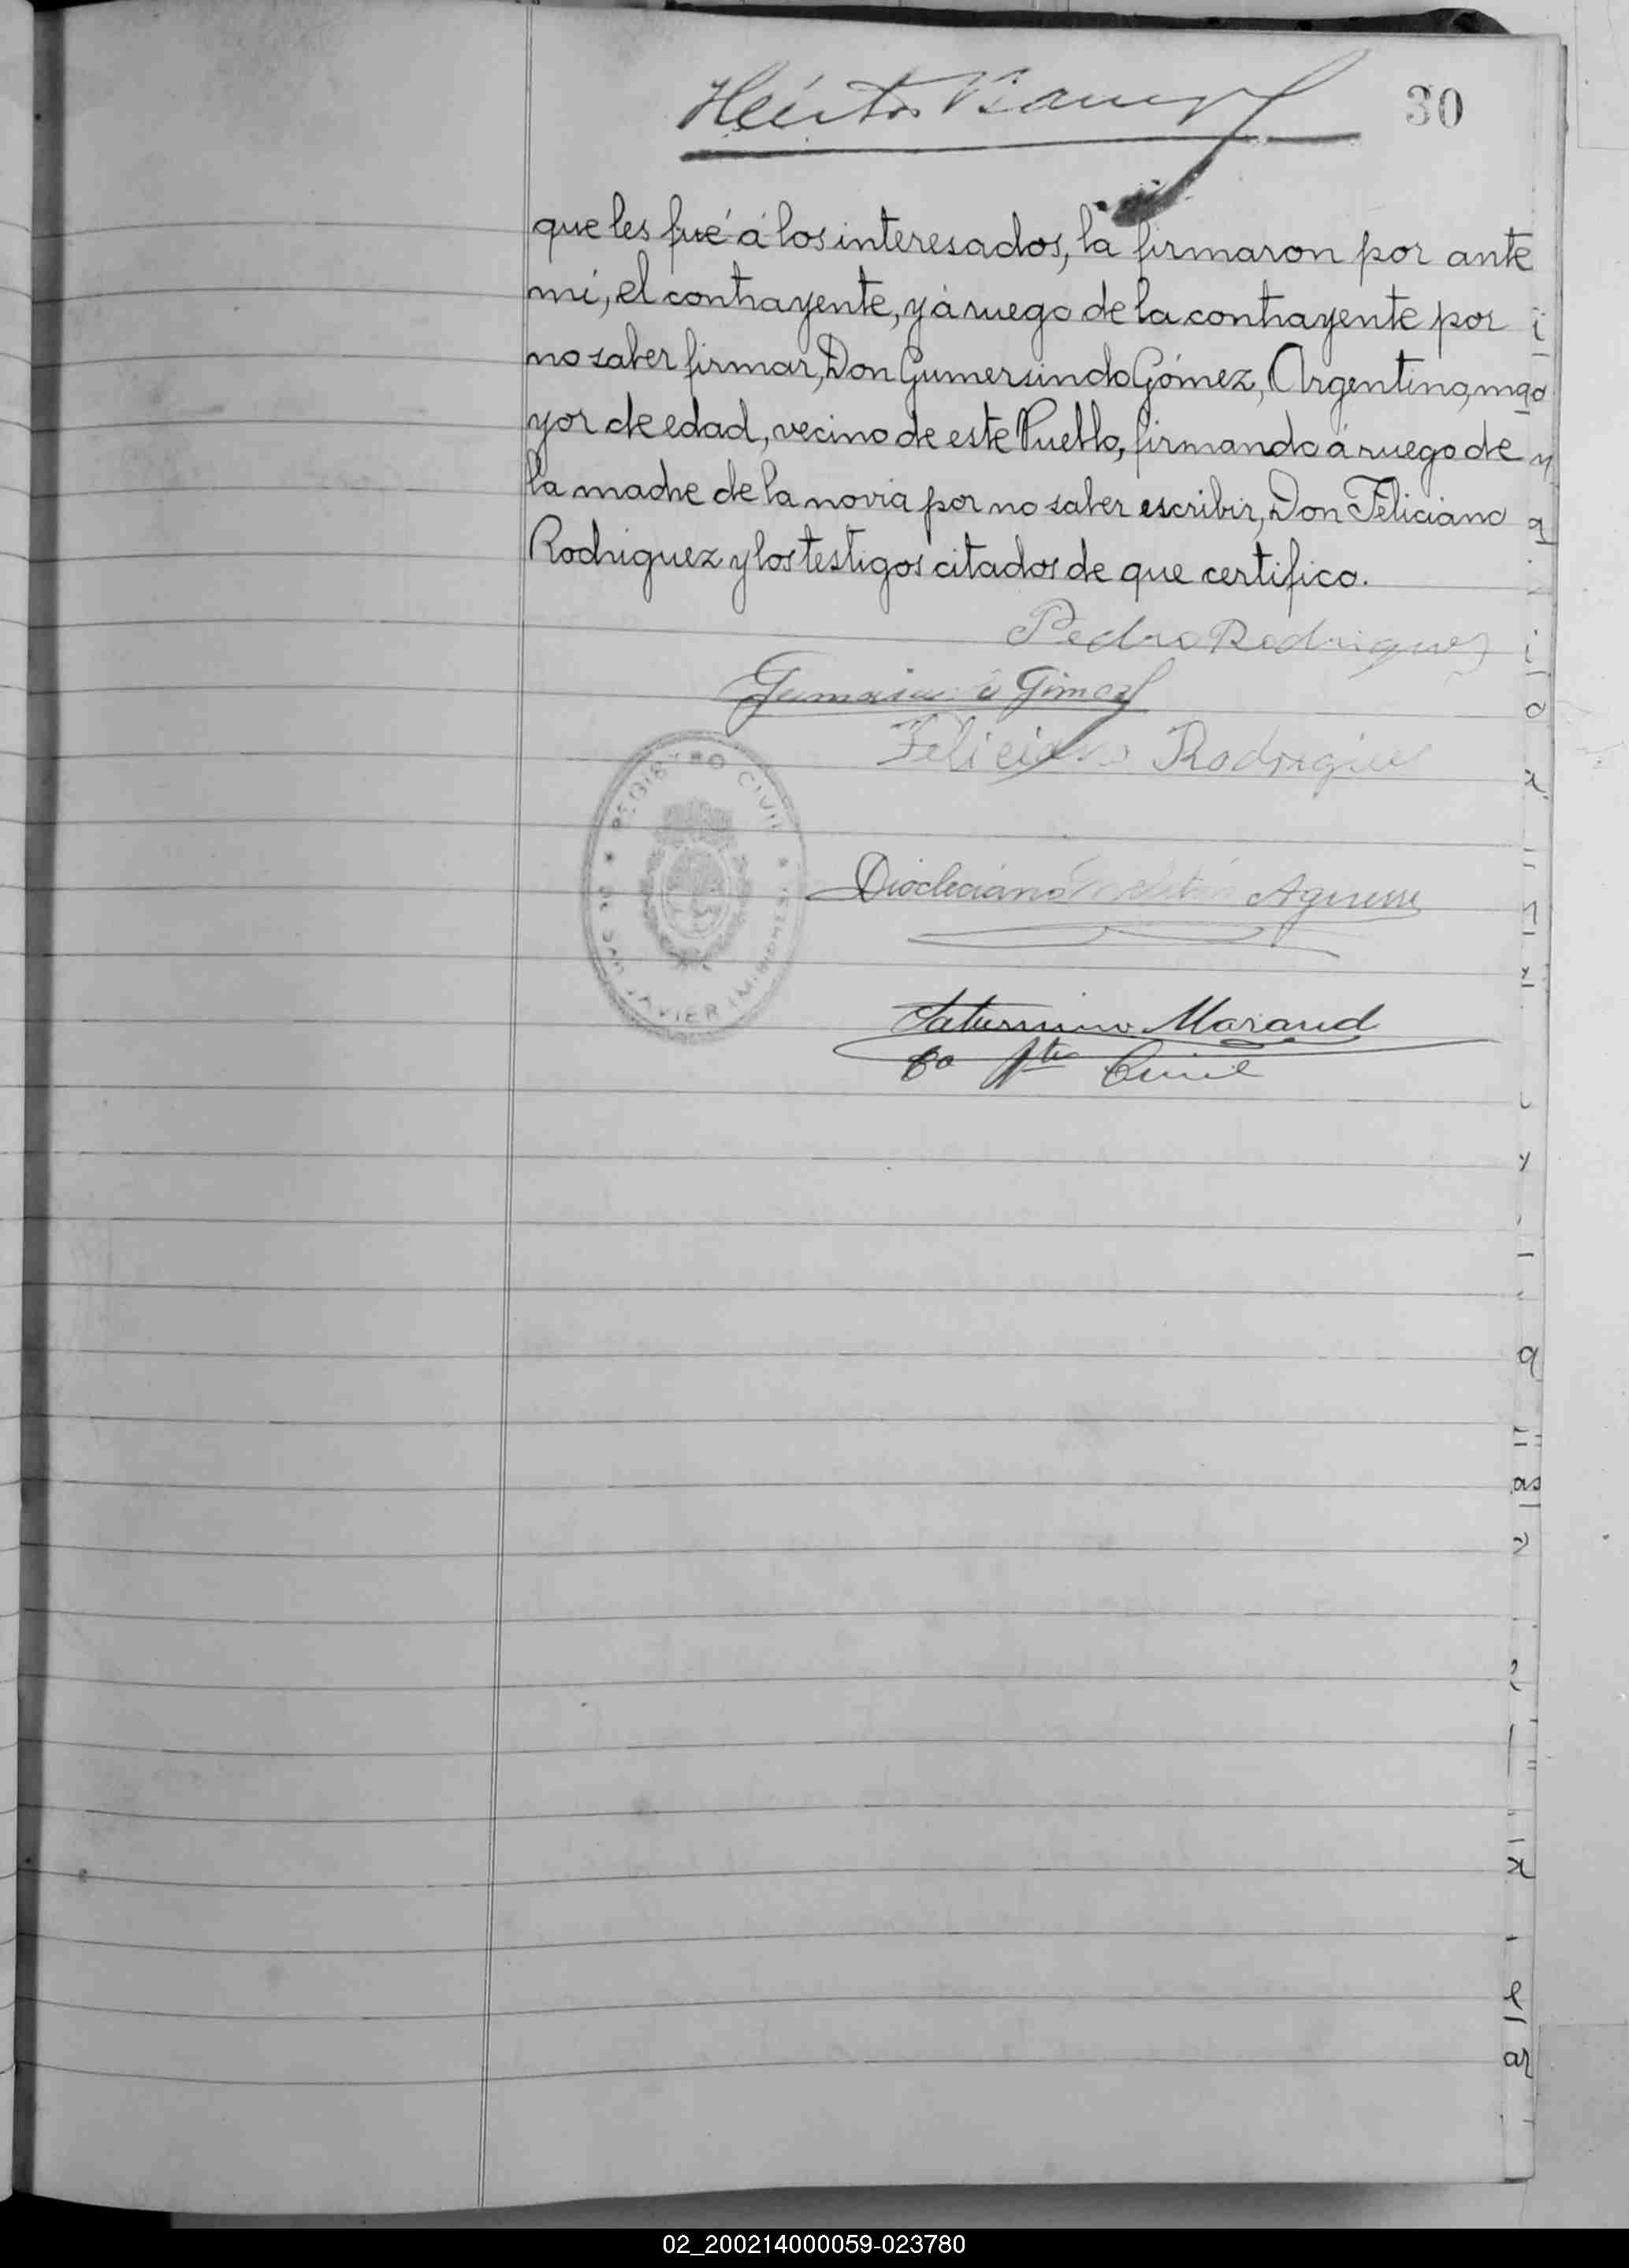 Héctor
30
que les fué á los interesados, la firmaron por ante
mi, el contrayente, y á ruego de la contrayente por
no saber firmar, Don Gumersindo Gómez, Argentino, ma
yor de edad, vecino de este Pueblo, firmando á ruego de
la madre de la novia por no saber escribir, Don Feliciano
Rodriguez y los testigos citados de que certifico.
Pedro Rodriguez
Gómez
Feliciano Rodrigues
REGISTRO CIVIL
DE SAN JAVIER (MISIONES)
Diocleciano Aguirre
Saturnino
Civil
02_200214000059-023780